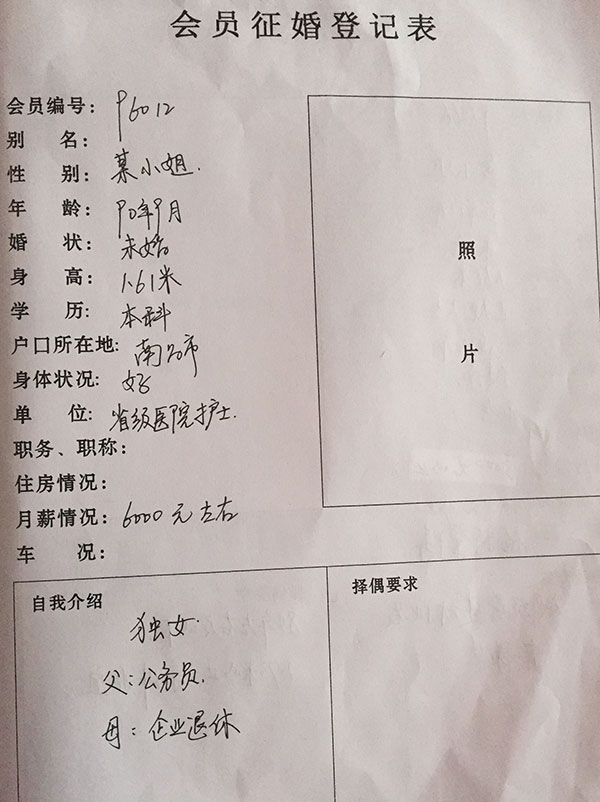 会员征婚登记表
会员编号: P6012
别 名:
性 别: 某小姐.
年 龄: 90年9月
婚 状: 未婚
身 高: 1.61米
学 历: 本科
户口所在地: 南昌市
身体状况: 好
单 位: 省级医院护士.
职务、职称:
住房情况:
月薪情况: 6000元左右
车 况:
照
片
自我介绍
独女.
父:公务员.
母:企业退休
择偶要求